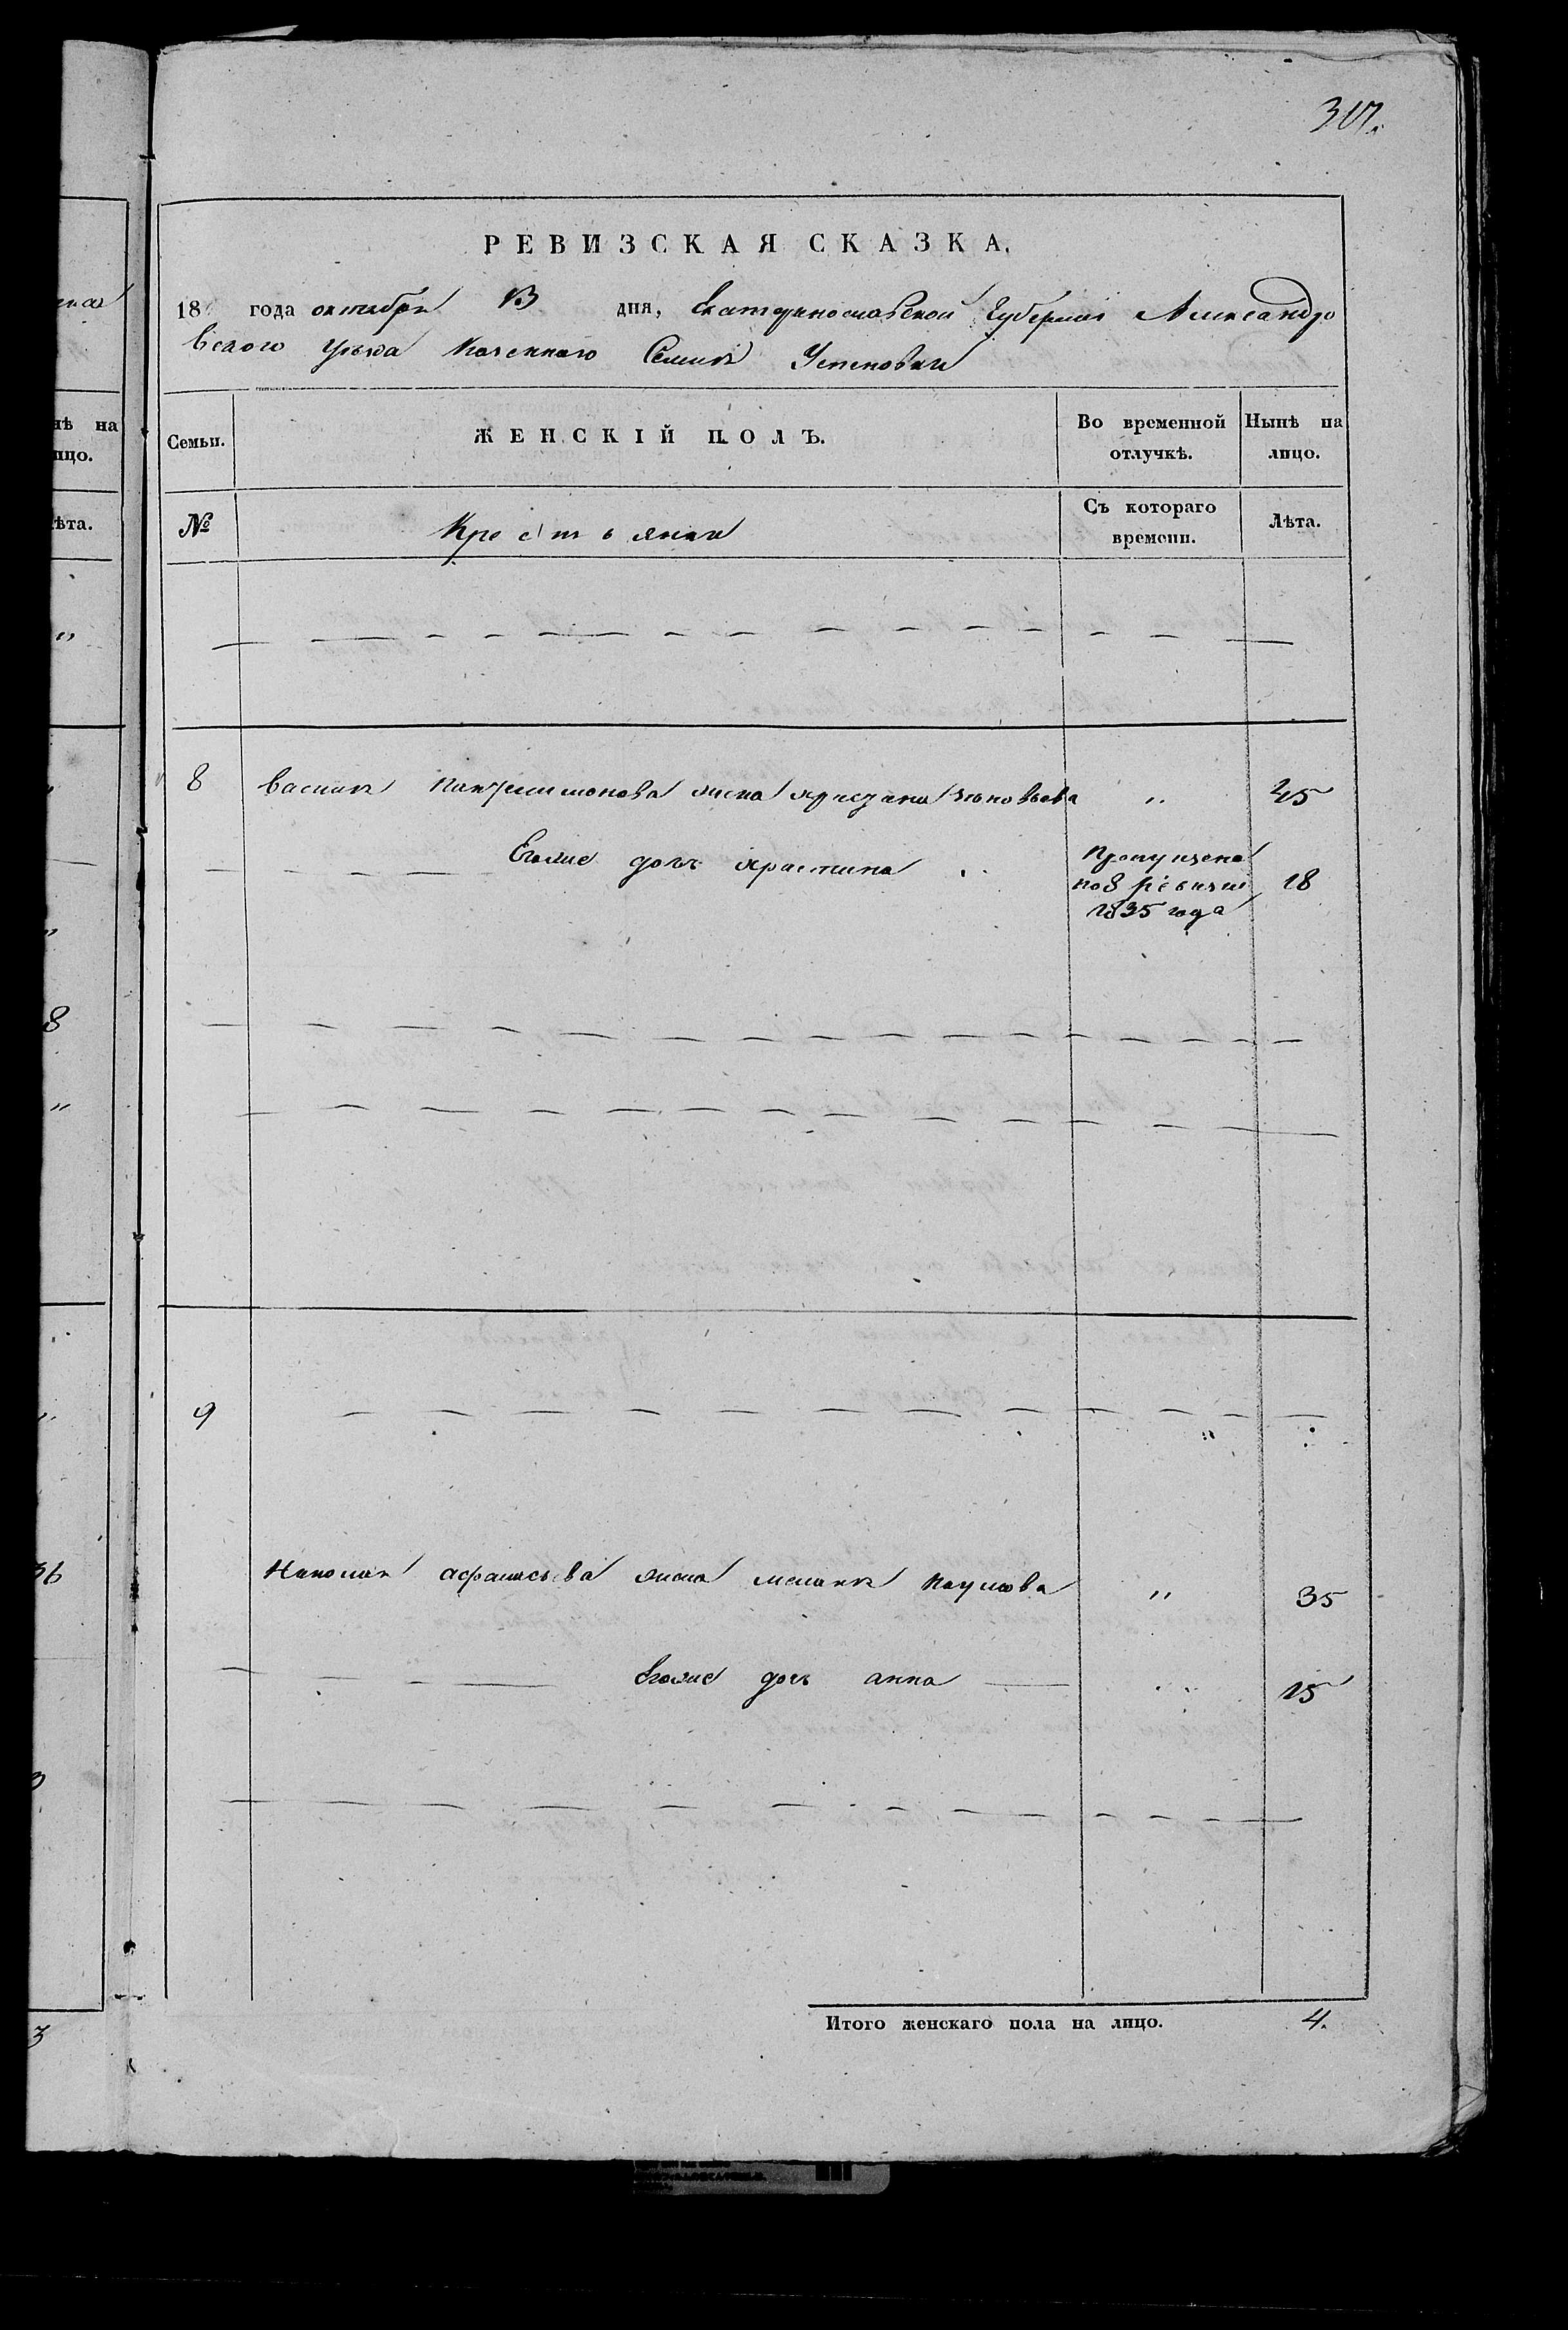 317.
РЕВИЗСКАЯ СКАЗКА.
18 года октября 13 дня, Екатеринославской Губернии Александро
вского уезда Казенного Селия Успеновки
Семьи. ЖЕНСКІЙ ПОЛЪ. Во временной отлучкѣ. Нынѣ на лицо.
№ Крестьянки Съ котораго времени. Лѣта.
8 Василия Пантелимонова жена Зѣновьева „ 45
Егоже дочь христина Пропущена по 8 ревизии 1835 года 18
9
Николая афанасьева жена меланья Наумова „ 35
Егоже дочь анна „ 15
Итого женскаго пола на лицо. 4.
нѣ на
лицо.
лѣта.
„
8
„
36
3